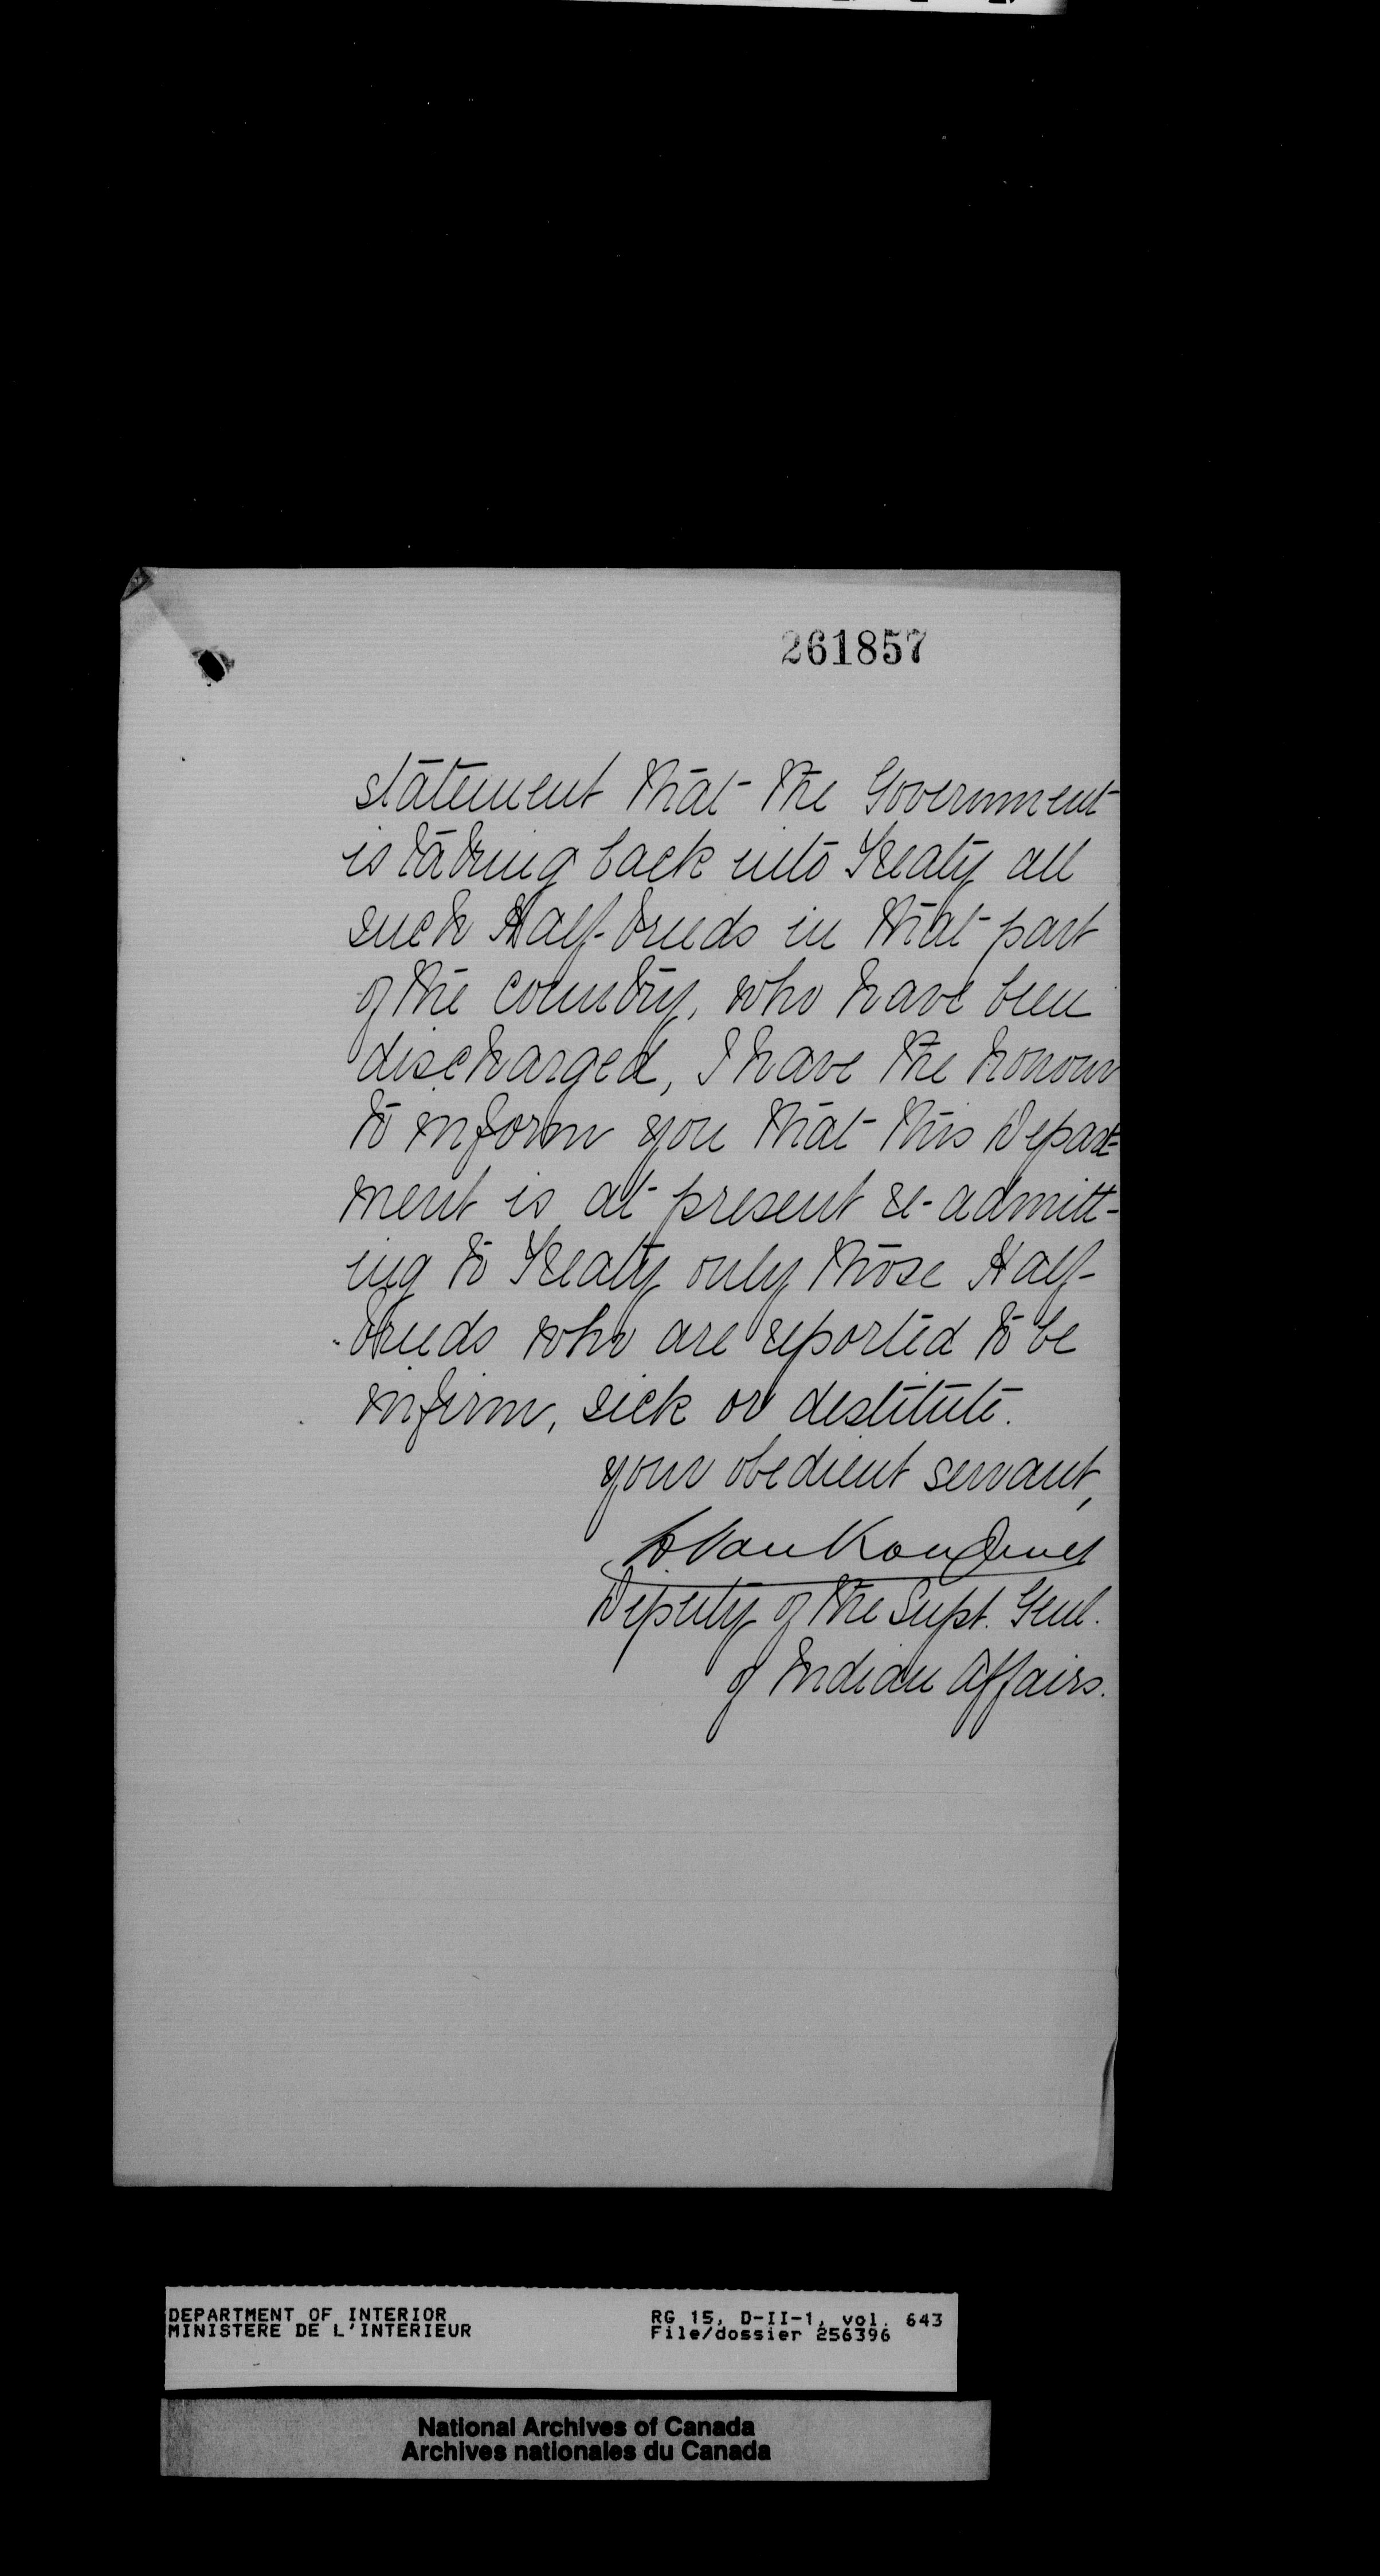 261857
statement that the Government
is taking back into Treaty all
such Half-breeds in that part
of the country, who have been
discharged, I have the honour
to inform you that this Depart-
ment is at present re-admitt-
ing to Treaty only those Half-
-breeds who are reported to be
infirm, sick or destitute.
your obedient servant,
L. VanKoughnet
Deputy of the Supt. Genl.
of Indian Affairs.
DEPARTMENT OF INTERIOR
MINISTERE DE L'INTERIEUR
RG 15, D-II-1, vol. 643
File/dossier 256396
National Archives of Canada
Archives nationales du Canada